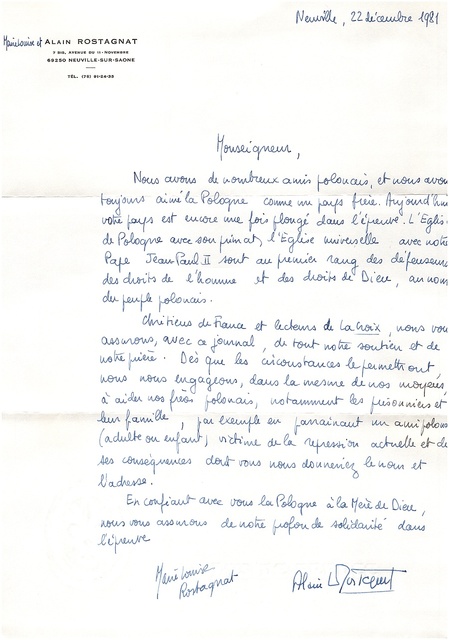 Neuville, 22 décembre 1981
Marie Louise et ALAIN ROSTAGNAT
7 BIS, AVENUE DU 11-NOVEMBRE
69250 NEUVILLE-SUR-SAONE
TÉL. (78) 91-24-33
Monseigneur,
Nous avons de nombreux amis polonais, et nous avons
toujours aimé la Pologne comme un pays frère. Aujourd'hui
votre pays est encore une fois plongé dans l'épreuve. L'Eglise
de Pologne avec son primat, l'Eglise universelle avec notre
Pape Jean Paul II sont au premier rang des défenseurs
des droits de l'homme et des droits de Dieu, au nom
du peuple polonais.
Chrétiens de France et lecteurs de La Croix, nous vous
assurons, avec ce journal, de tout notre soutien et de
notre prière. Dès que les circonstances le permettront,
nous nous engageons, dans la mesure de nos moyens,
à aider nos frères polonais, notamment les prisonniers et
leur famille, par exemple en parrainant un ami polonais
(adulte ou enfant) victime de la repression actuelle et de
ses conséquences dont vous nous donneriez le nom et
l'adresse.
En confiant avec vous la Pologne à la Mère de Dieu,
nous vous assurons de notre profonde solidarité dans
l'épreuve
Marie Louise
Rostagnat
Alain Rostagnat